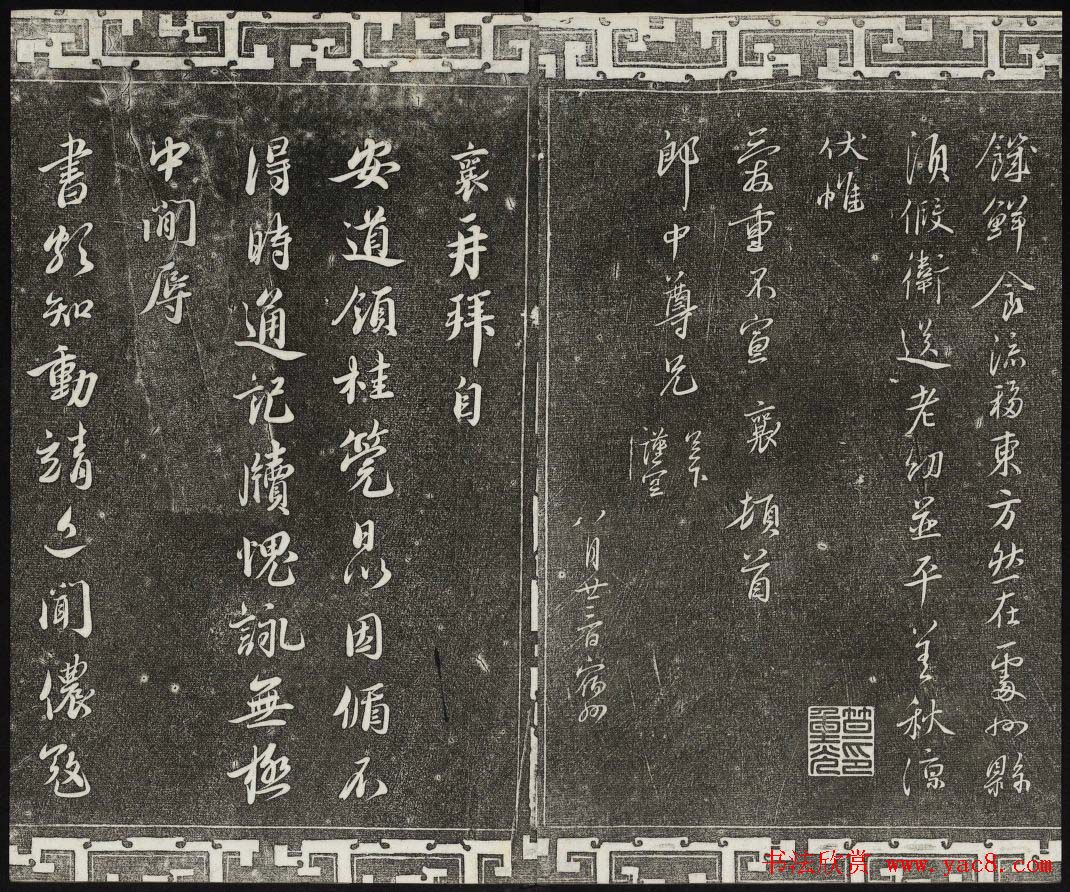 饑鮮食流移東方然在處州縣
須假衛送老幼並平善秋涼
伏惟
愛重不宣 襄 頓首
郎中尊兄 足下 謹空
八月廿三日宿州
襄再拜自
安道領桂筦日以因循不
得時通記牘愧詠無極
中間辱
書頗知動靖近聞儂寇
书法欣赏 www.yac8.com